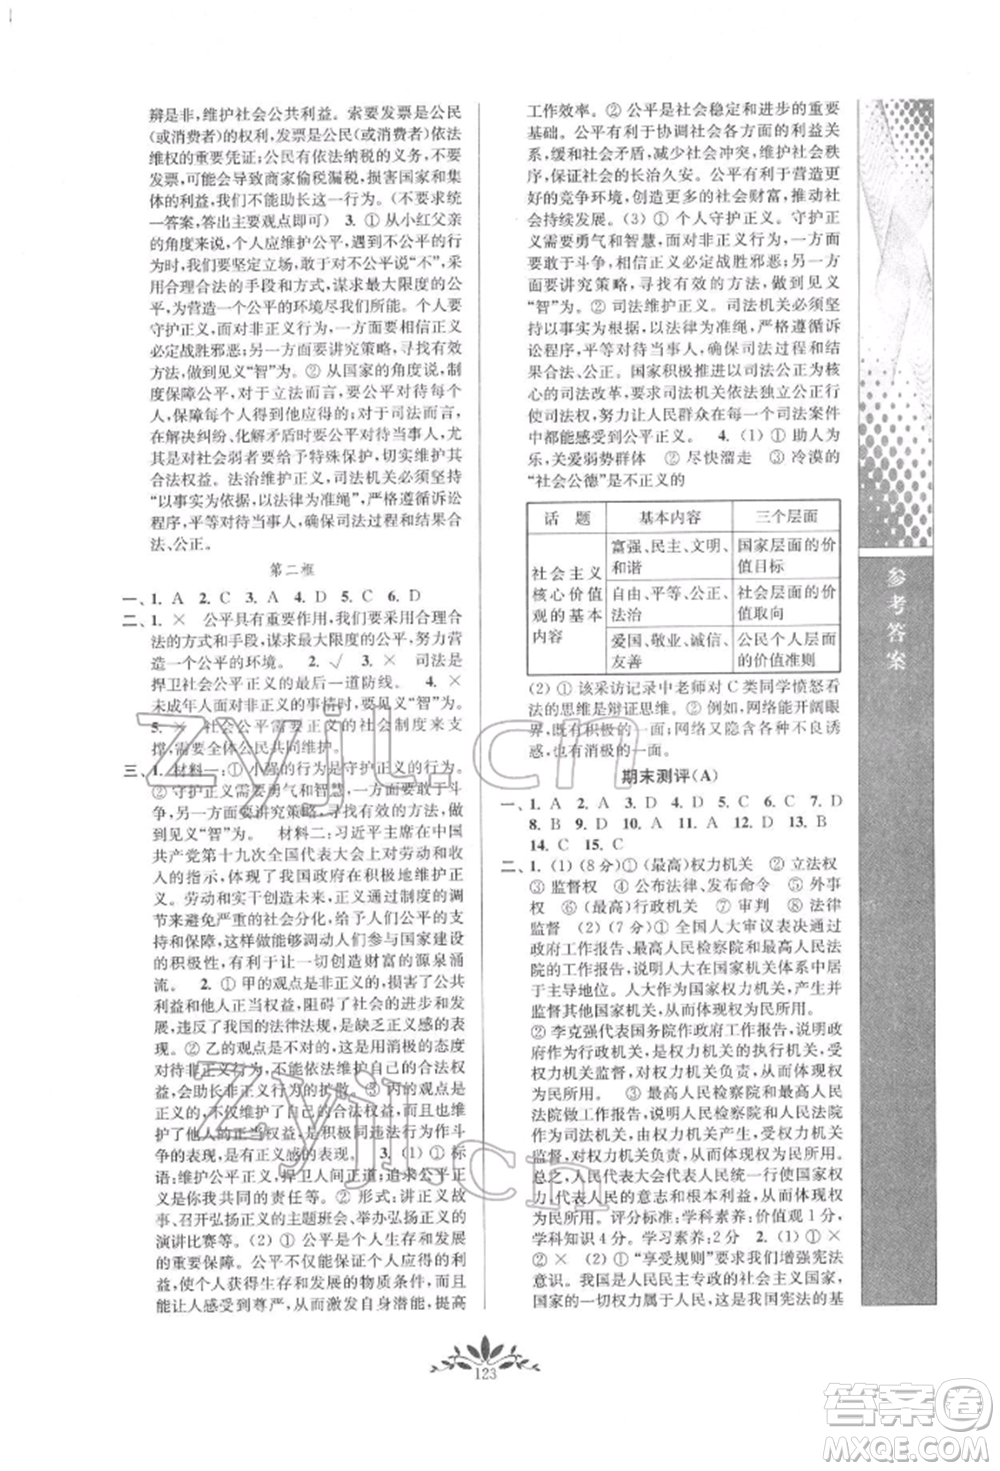 辨是非,维护社会公共利益。索要发票是公民
(或消费者)的权利,发票是公民(或消费者)依法
维权的重要凭证;公民有依法纳税的义务,不要发
票,可能会导致商家偷税漏税,损害国家和集
体的利益,我们不能鼓励这一行为。(不要求统
一答案,答出主要观点即可) 3. ① 从小红父亲
的角度来说,个人应维护公平,遇到不公平的行
为时,我们要坚定立场,敢于对不公平说“不”,
采用合理合法的手段和方式,谋求最大限度的公平,
为营造一个公平的环境尽我们所能。个人要
守护正义,面对非正义行为,一方面要相信正义
必定战胜邪恶;另一方面要讲究策略,寻找有效方
法,做到见义“智”为。② 从国家的角度说,制
度保障公平,对于立法而言,要公平对待每个
人,保障每个人得到他(她)应得的;对于司法而言,
在解决纠纷、化解矛盾时要公平对待当事人,
对社会弱者要给予特殊保护,切实维护其
合法权益。法治维护正义,司法机关必须坚持
“以事实为依据,以法律为准绳”,严格遵循诉讼
程序,平等对待当事人,确保司法过程和结果合
法、公正。
第二框
一、1. A 2. C 3. A 4. D 5. C 6. D
二、1. × 公平具有重要作用,我们要采用合理合
法的方式和手段,谋求最大限度的公平,努力营
造一个公平的环境。 2. √ 3. × 司法是
捍卫社会公平正义的最后一道防线。 4. ×
未成年人面对非正义的事情时,要见义“智”为。
5. × 社会公平需要正义的社会制度来支
撑,需要全体公民共同维护。
三、1. 材料一:① 小强的行为是守护正义的行为。
② 守护正义需要勇气和智慧,一方面要敢于斗
争,另一方面要讲究策略,寻找有效的方法,
做到见义“智”为。 材料二:习近平主席在中国
共产党第十九次全国代表大会上关于劳动和收
入的指示,体现了我国政府在积极地维护社会
公平。劳动和实干创造未来,通过制度的调
节来避免严重的社会分化,给予人们公平的支
持和保障,这样做能够调动人们参与国家建设
的积极性,有利于让一切创造财富的源泉涌
流。 2. ① 甲的观点是不对的,损害了公共
利益和他人正当权益,阻碍了社会的进步和发
展,违反了我国的法律法规,是缺乏正义感的表现。
② 乙的观点是不对的,用消极的态度看
待社会非正义行为,不能依法维护自己的正当权
益,会助长非正义行为的扩散。③ 丙的观点是
正确的,不仅维护了自己的合法权益,而且维护
了他人的正当权益,是积极同违法行为作斗
争的表现,有正义感的表现。 3. (1) ① 标
语:维护社会公平,捍卫人间正道;追求公平正
义,是我们共同的责任等。② 形式:讲正义故
事、召开弘扬正义的主题班会、举办弘扬正义的
演讲比赛等。(2) ① 公平是个人生存和发展
的重要保障。公平能保证个人应得的利益,
使个人获得生存和发展的物质条件,而且还
能让人感受到尊严,从而激发自身潜能,提高
工作效率。② 公平是社会稳定和进步的重要
基础。公平有利于协调社会各方面的利益关
系,缓和社会矛盾,减少社会冲突,维护社会秩序,
保证社会的长治久安。公平有利于营造更好的
竞争环境,创造更多的社会财富,推动社
会持续发展。(3) ① 个人守护正义。守护正
义需要勇气和智慧,面对非正义行为,一方面要
敢于斗争,相信正义必定战胜邪恶;另一方面
要讲究策略,寻找有效的方法,做到见义
“智”为。② 司法维护正义。司法机关必须坚
持以事实为根据,以法律为准绳,严格遵循诉
讼程序,平等对待当事人,确保司法过程和结果
合法、公正。国家积极推进以司法公正为核
心的司法改革,要求司法机关依法独立公正行
使司法权,努力让人民群众在每一个司法案件
中都能感受到公平正义。 4. (1) ① 助人为
乐,关爱弱势群体 ② 尽快溜走 ③ 冷漠的
“社会公德”是不正义的
话 题 基本内容 三个层面
社会主义核心价值观的基本内容
富强、民主、文明、和谐 国家层面的价值目标
自由、平等、公正、法治 社会层面的价值取向
爱国、敬业、诚信、友善 公民个人层面的价值准则
(2) ① 该采访记录中老师对 C 类同学愤怒看
法的思维是辩证思维。② 例如,网络能开阔眼
界,既有积极的一面;网络又隐含各种不良诱
惑,也有消极的一面。
期末测评(A)
一、1. A 2. A 3. D 4. D 5. C 6. D 7. D
8. B 9. D 10. A 11. D 12. D 13. B
14. C 15. C
二、1. (1) (8 分) ① (最高)权力机关 ② 立法权
③ 监督权 ④ 公布法律、发布命令 ⑤ 外事
权 ⑥ (最高)行政机关 ⑦ 审判 ⑧ 法律
监督 (2) (7 分) ① 全国人大审议表决通过
政府工作报告、最高人民检察院和最高人民法
院的工作报告,说明人大在国家机关体系中居于
主导地位。人大作为国家权力机关,产生并
监督其他国家机关,充分体现权为民所用。
② 李克强代表国务院作政府工作报告,说明政
府作为行政机关,是权力机关的执行机关,受权
力机关监督,对权力机关负责,从而体现权为
民所用。③ 最高人民检察院和最高人民
法院做工作报告,说明人民检察院和人民法院作
为司法机关,由权力机关产生,受权力机关监
督,对权力机关负责,从而体现权为民所用。
总之,人民代表大会代表人民统一行使权力,
充分体现了人民的意志和根本利益,体现权为民
所用。评分标准:学科素养:价值观 1 分,
学科知识 4 分。学习素养:2 分 2. (1) ①
② × (2) ① “享受规则”要求我们增强宪法
意识。我国是人民民主专政的社会主义国家,
国家的一切权力属于人民,这是我国宪法的基
参考答案
123
zyjl.cn
zyjl.cn
答案圈
MXQE.COM